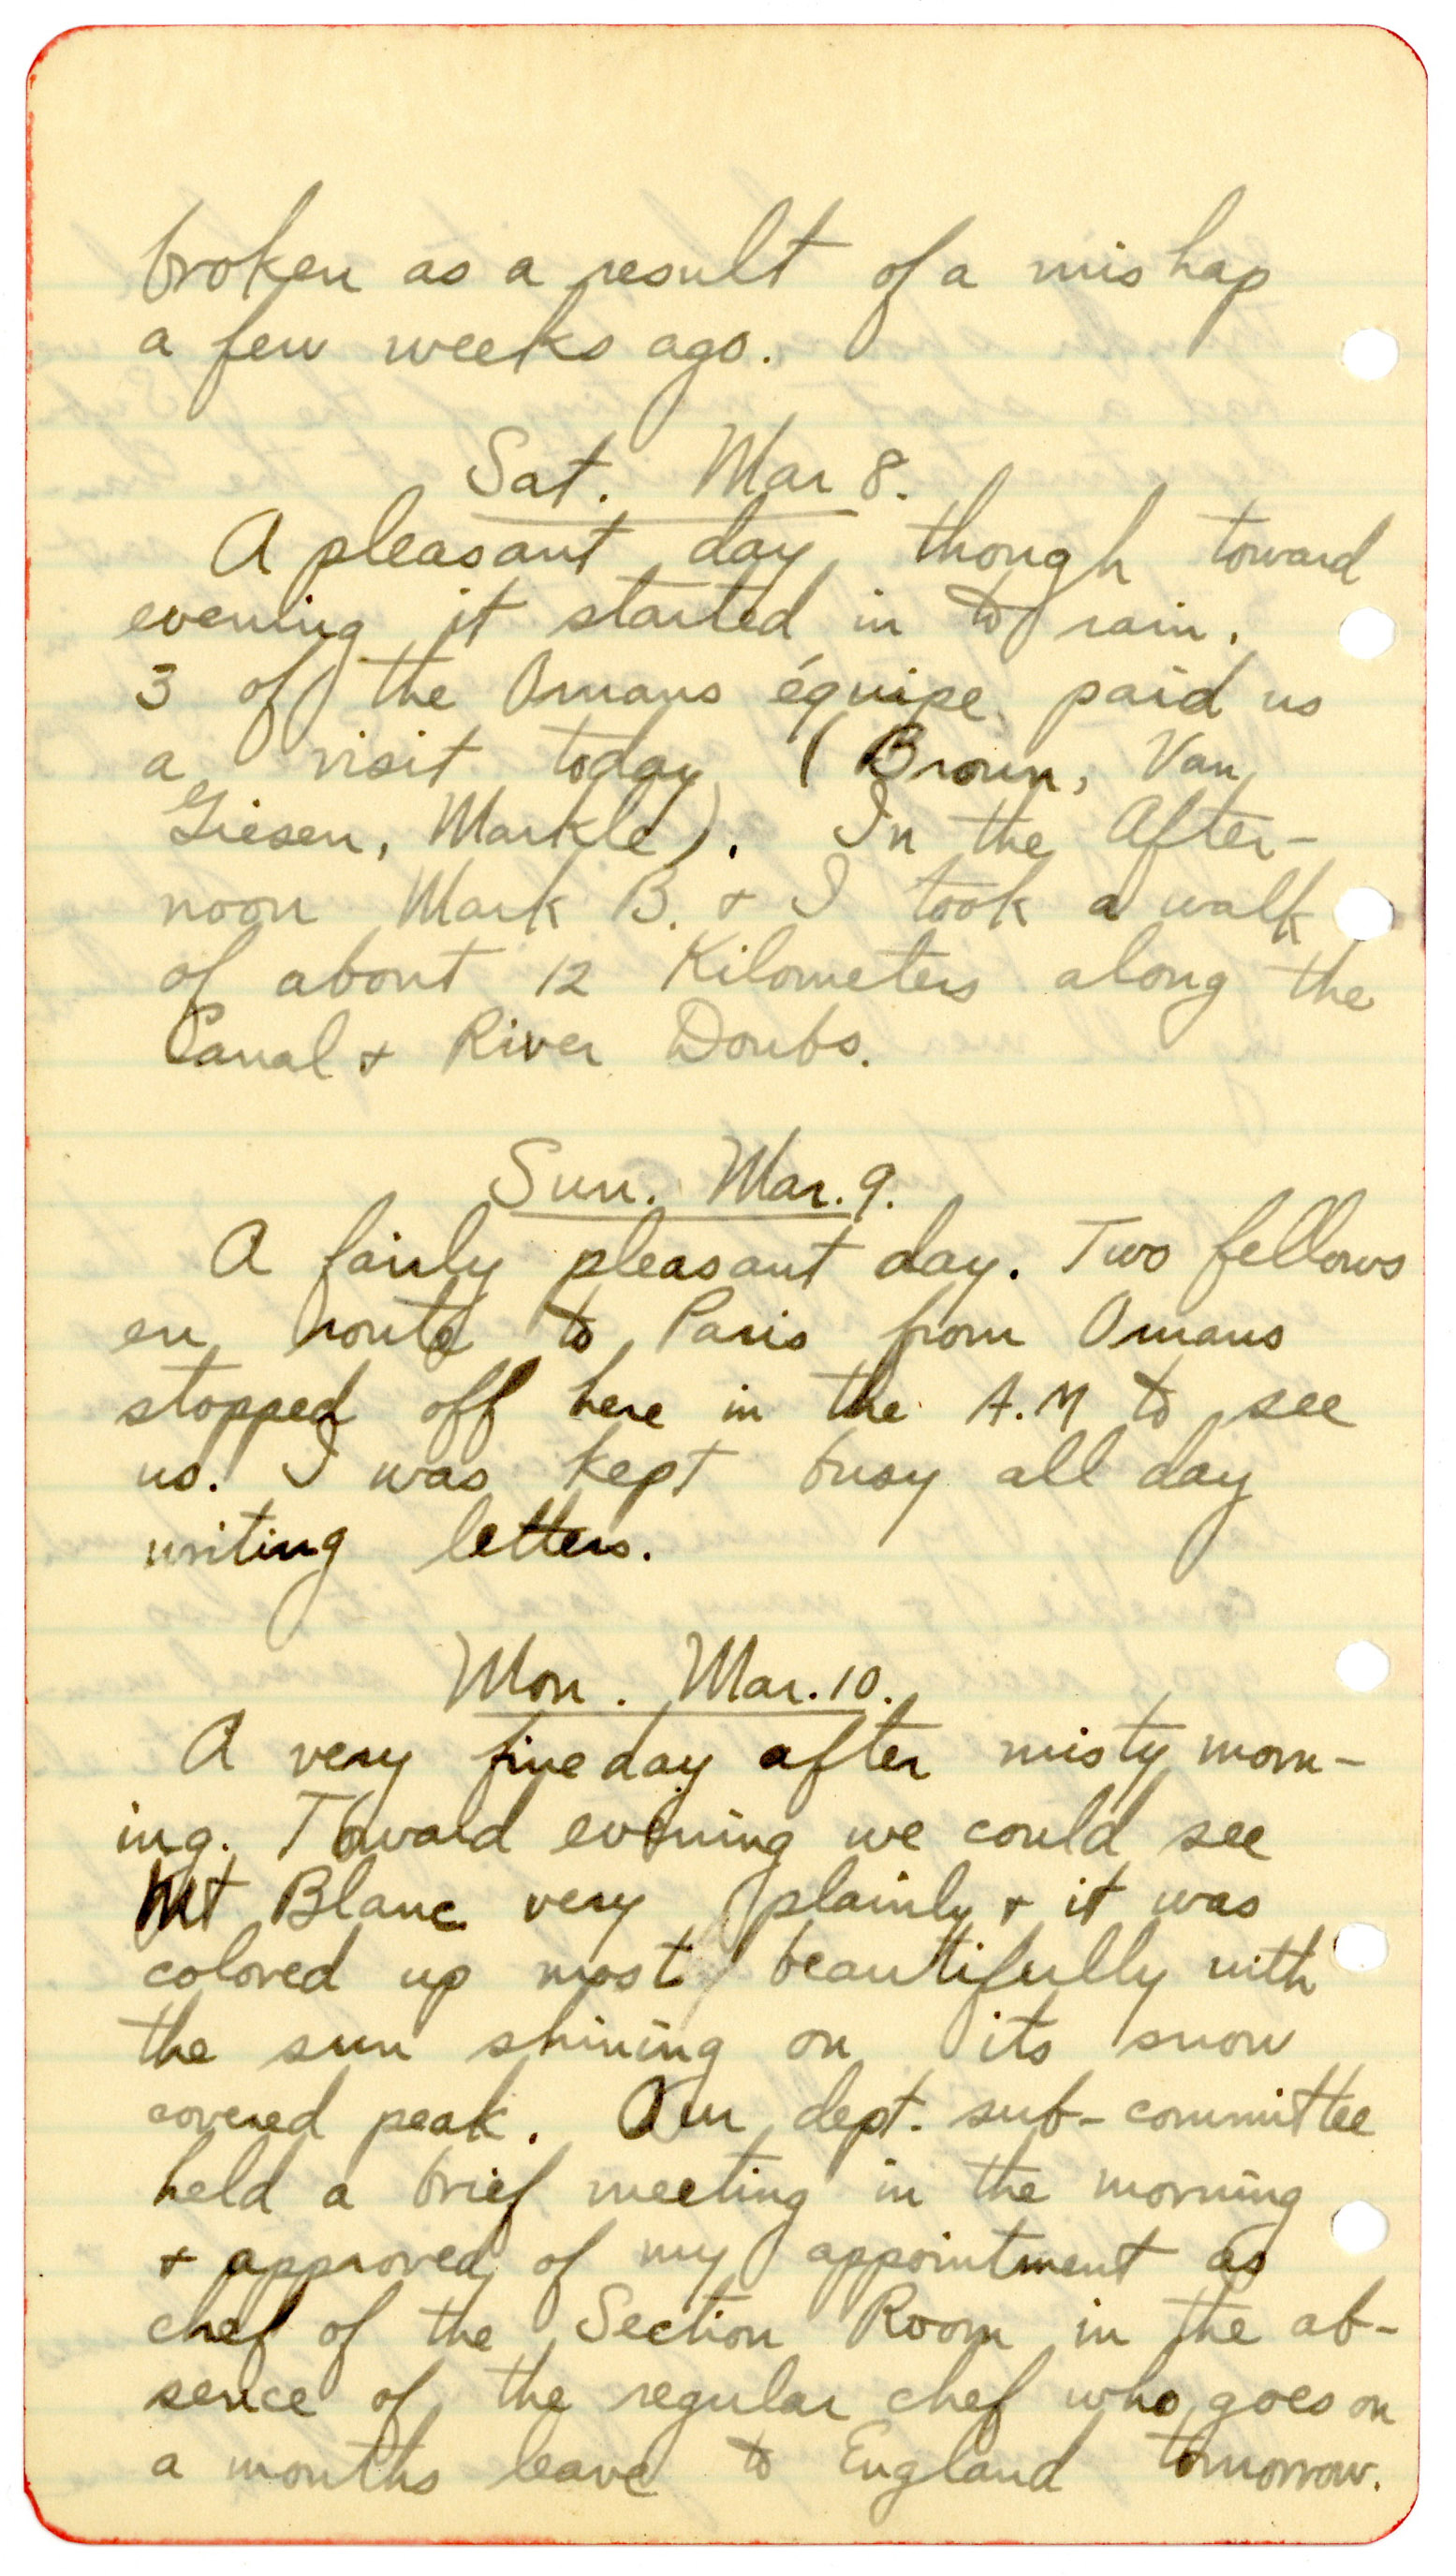 broken as a result of a mishap
a few weeks ago.
Sat. Mar 8.
A pleasant day, though toward
evening it started in to rain.
3 of the Ornans équipe paid us
a visit today (Brown, Van
Giesen, Markle). In the After-
noon Mark B. + I took a walk
of about 12 Kilometers along the
Canal + River Doubs.
Sun. Mar. 9.
A fairly pleasant day. Two fellows
en route to Paris from Ornans
stopped off here in the A.M to see
us. I was kept busy all day
writing letters.
Mon. Mar. 10.
A very fine day after misty morn-
ing. Toward evening we could see
Mt Blanc very plainly + it was
colored up most beautifully with
the sun shining on its snow
covered peak. Our dept. sub-committee
held a brief meeting in the morning
+ approved of my appointment as
chef of the Section Room in the ab-
sence of the regular chef who goes on
a months leave to England tomorrow.